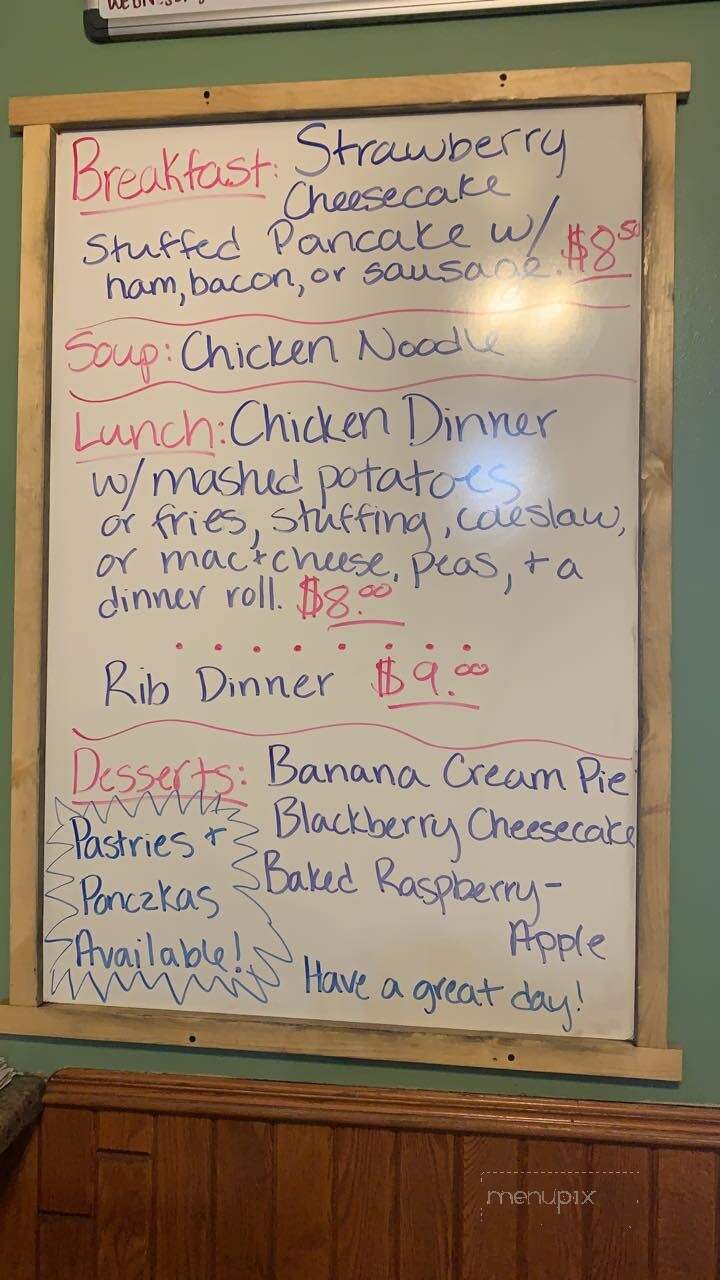 Breakfast: Strawberry
Cheesecake
Stuffed Pancake w/
ham, bacon, or sausage. $8.50
Soup: Chicken Noodle
Lunch: Chicken Dinner
w/ mashed potatoes
or fries, stuffing, coleslaw,
or mac + cheese, peas, + a
dinner roll. $8.00
Rib Dinner $9.00
Desserts: Banana Cream Pie
Blackberry Cheesecake
Baked Raspberry-
Apple
Pastries +
Ponczkas
Available!
Have a great day!
menupix